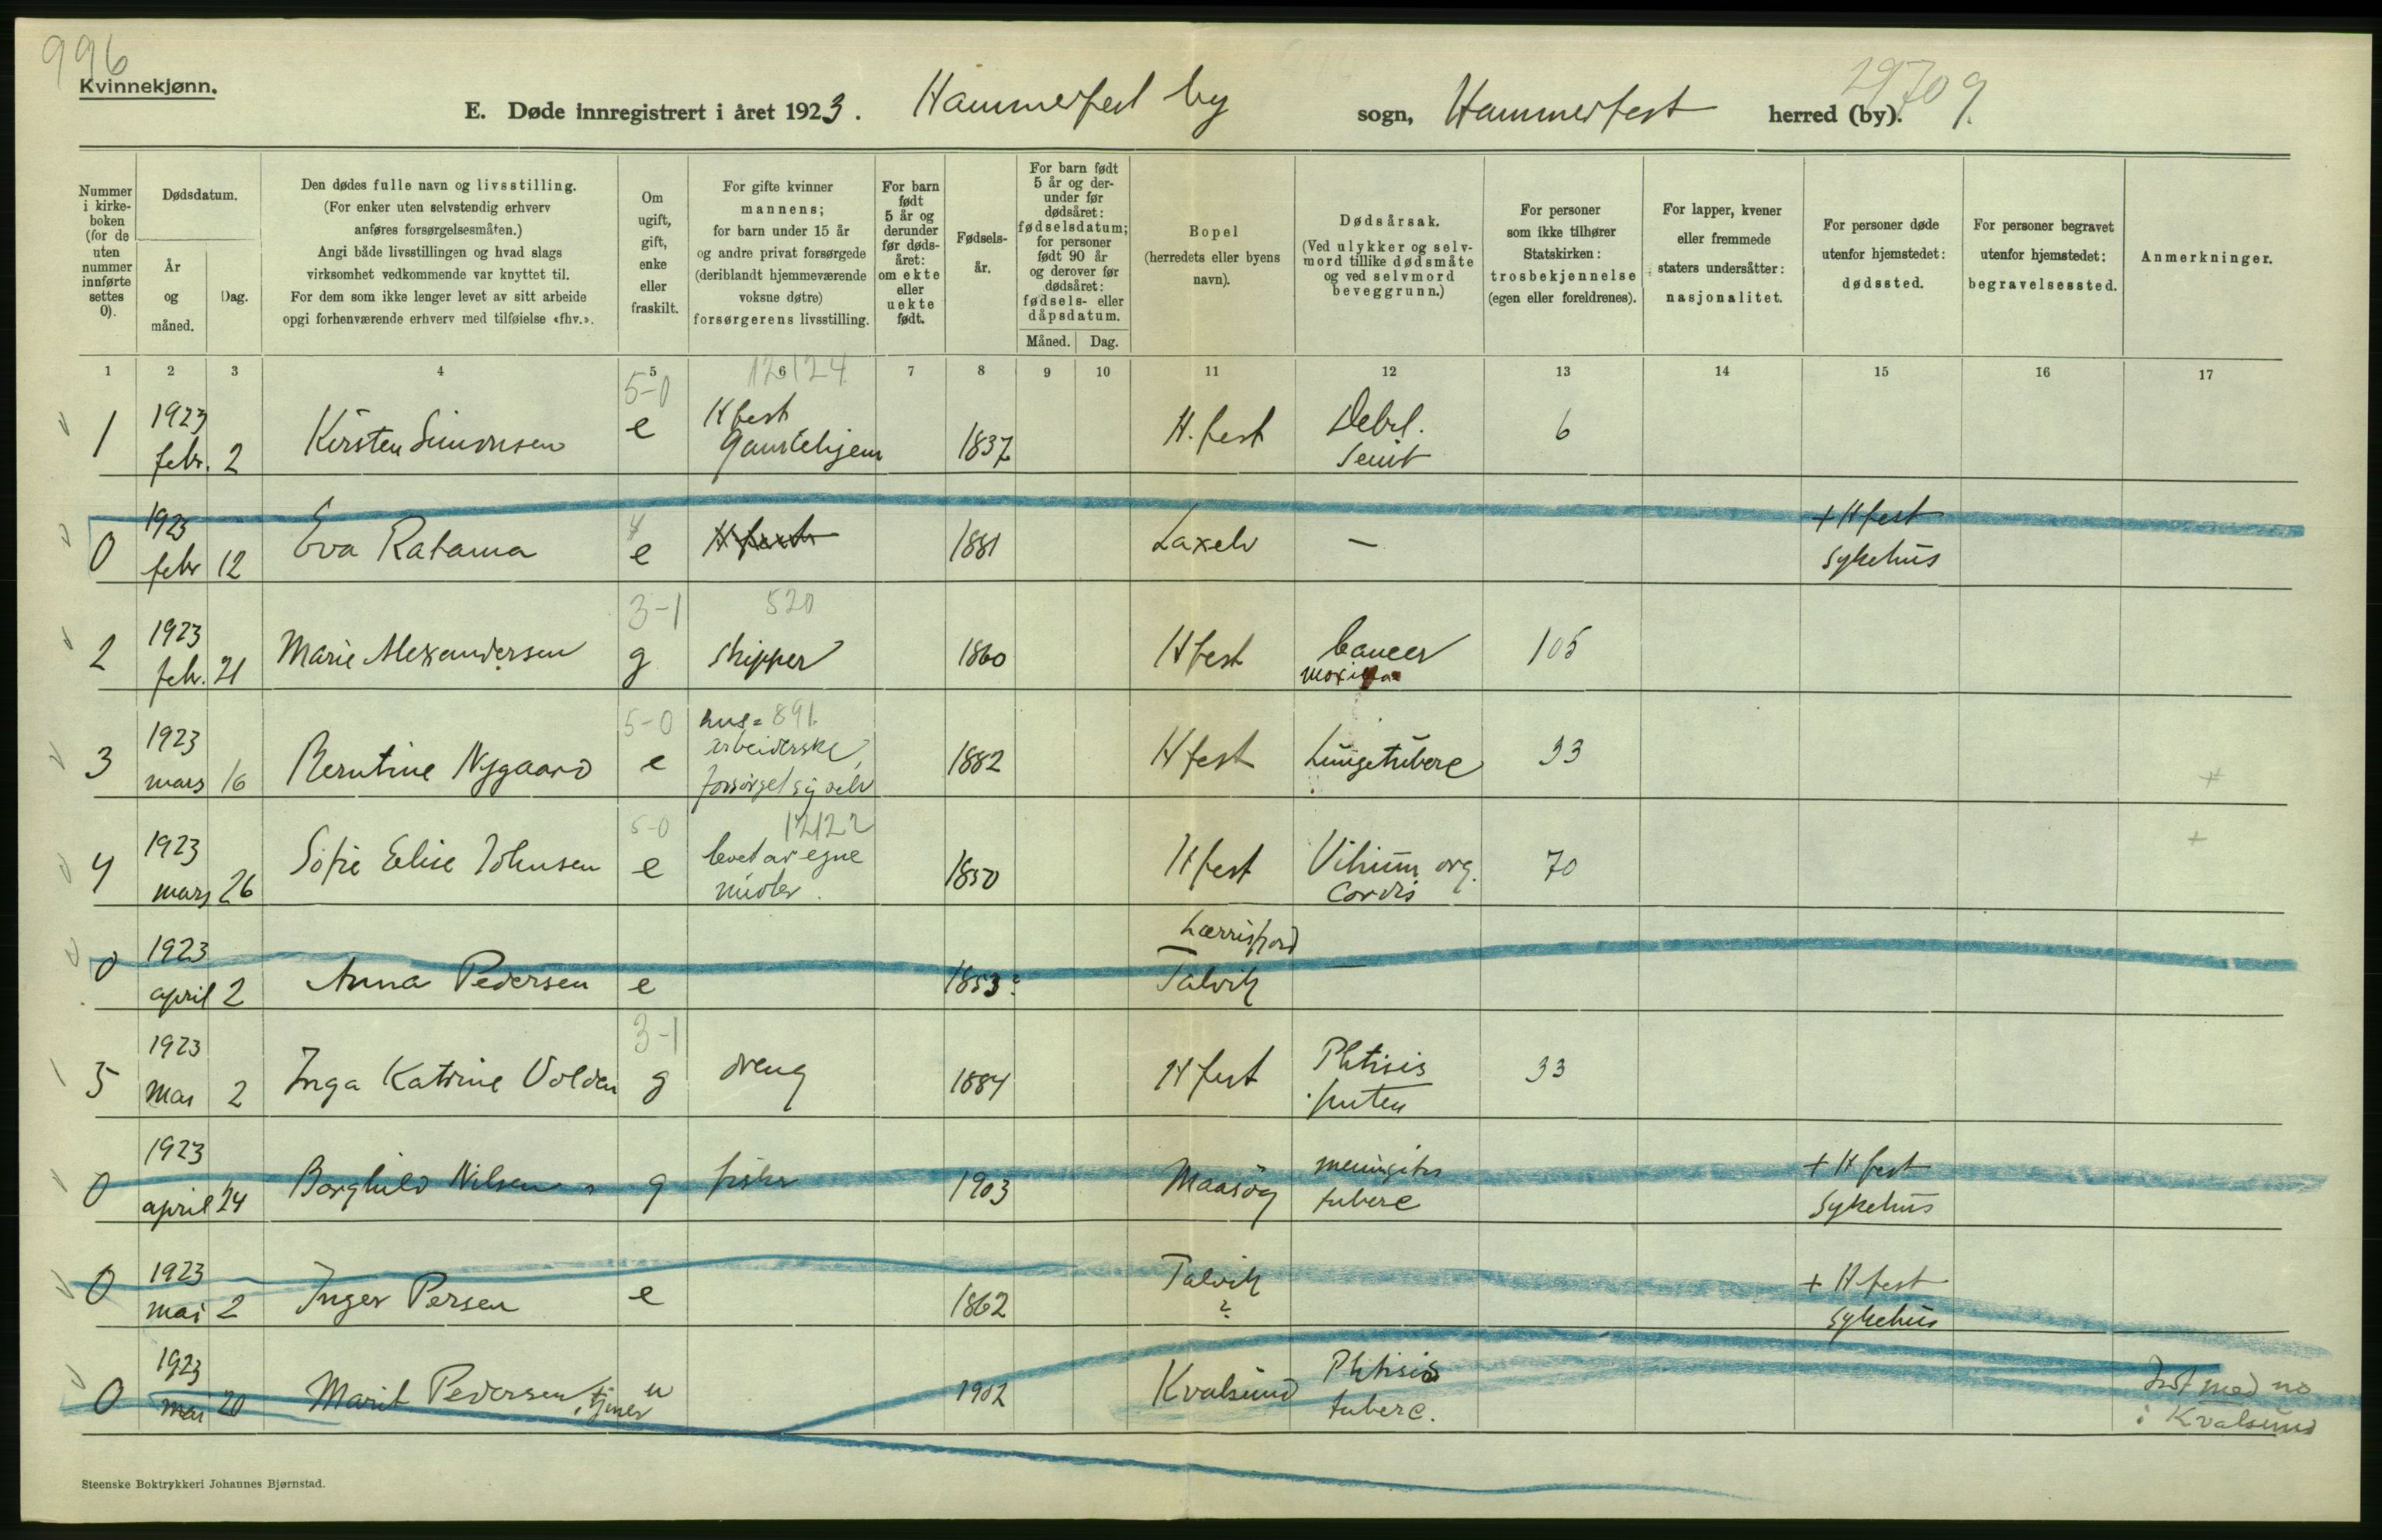 996
Kvinnekjønn.
E. Døde innregistrert i året 1923. Hammerfest by sogn, Hammerfest herred (by). 29709.
Nummer i kirkeboken (for de uten nummer innførte settes 0).
Dødsdatum.
År og måned.
Dag.
Den dødes fulle navn og livsstilling.
(For enker uten selvstendig erhverv
anføres forsørgelsesmåten.)
Angi både livsstillingen og hvad slags
virksomhet vedkommende var knyttet til.
For dem som ikke lenger levet av sitt arbeide
opgi forhenværende erhverv med tilføielse «fhv.».
Om ugift, gift, enke eller fraskilt.
For gifte kvinner
mannens;
for barn under 15 år
og andre privat forsørgede
(deriblandt hjemmeværende
voksne døtre)
forsørgerens livsstilling.
For barn født 5 år og derunder før dødsåret: om ekte eller uekte født.
Fødselsår.
For barn født 5 år og derunder før dødsåret: fødselsdatum; for personer født 90 år og derover før dødsåret: fødsels- eller dåpsdatum.
Måned. Dag.
Bopel
(herredets eller byens
navn).
Dødsårsak.
(Ved ulykker og selvmord tillike dødsmåte og ved selvmord beveggrunn.)
For personer
som ikke tilhører
Statskirken:
trosbekjennelse
(egen eller foreldrenes).
For lapper, kvener
eller fremmede
staters undersåtter:
nasjonalitet.
For personer døde
utenfor hjemstedet:
dødssted.
For personer begravet
utenfor hjemstedet:
begravelsessted.
Anmerkninger.
1 2 3 4 5 6 7 8 9 10 11 12 13 14 15 16 17
5-0 12124
1 1923 febr. 2 Kirsten Simonsen e Hfest Gamlehjem 1837 H.fest Debil. Senit 6
0 1923 febr 12 Eva Ratama e Hfest 1881 Laxelv — + Hfest sykehus
3-1 520
2 1923 febr. 21 Marie Alexandersen g skipper 1860 Hfest Cancer 105
5-0 891.
3 1923 mars 16 Berntine Nygaard e hus= arbeiderske, forsørget sig selv 1882 Hfest Lungetuberc 33
5-0 12122
4 1923 mars 26 Sofie Elise Johnsen e levet av egne midler. 1850 Hfest Vitium org. Cordis 70 +
0 1923 april 2 Anna Pedersen e 1853? Talvik —
3-1
5 1923 mai 2 Inga Katrine Volden g dreng 1884 Hfest Phtisis 33
0 1923 april 24 Borghild Nilsen g fisker 1903 Maasøy meningitis tuberc + Hfest sykehus
0 1923 mai 2 Inger Persen e 1862 Talvik ? + Hfest sykehus
0 1923 mai 20 Marit Pedersen, tjener u 1902 Kvalsund Phtisis tuberc. Indf med no i Kvalsund
Steenske Boktrykkeri Johannes Bjørnstad.